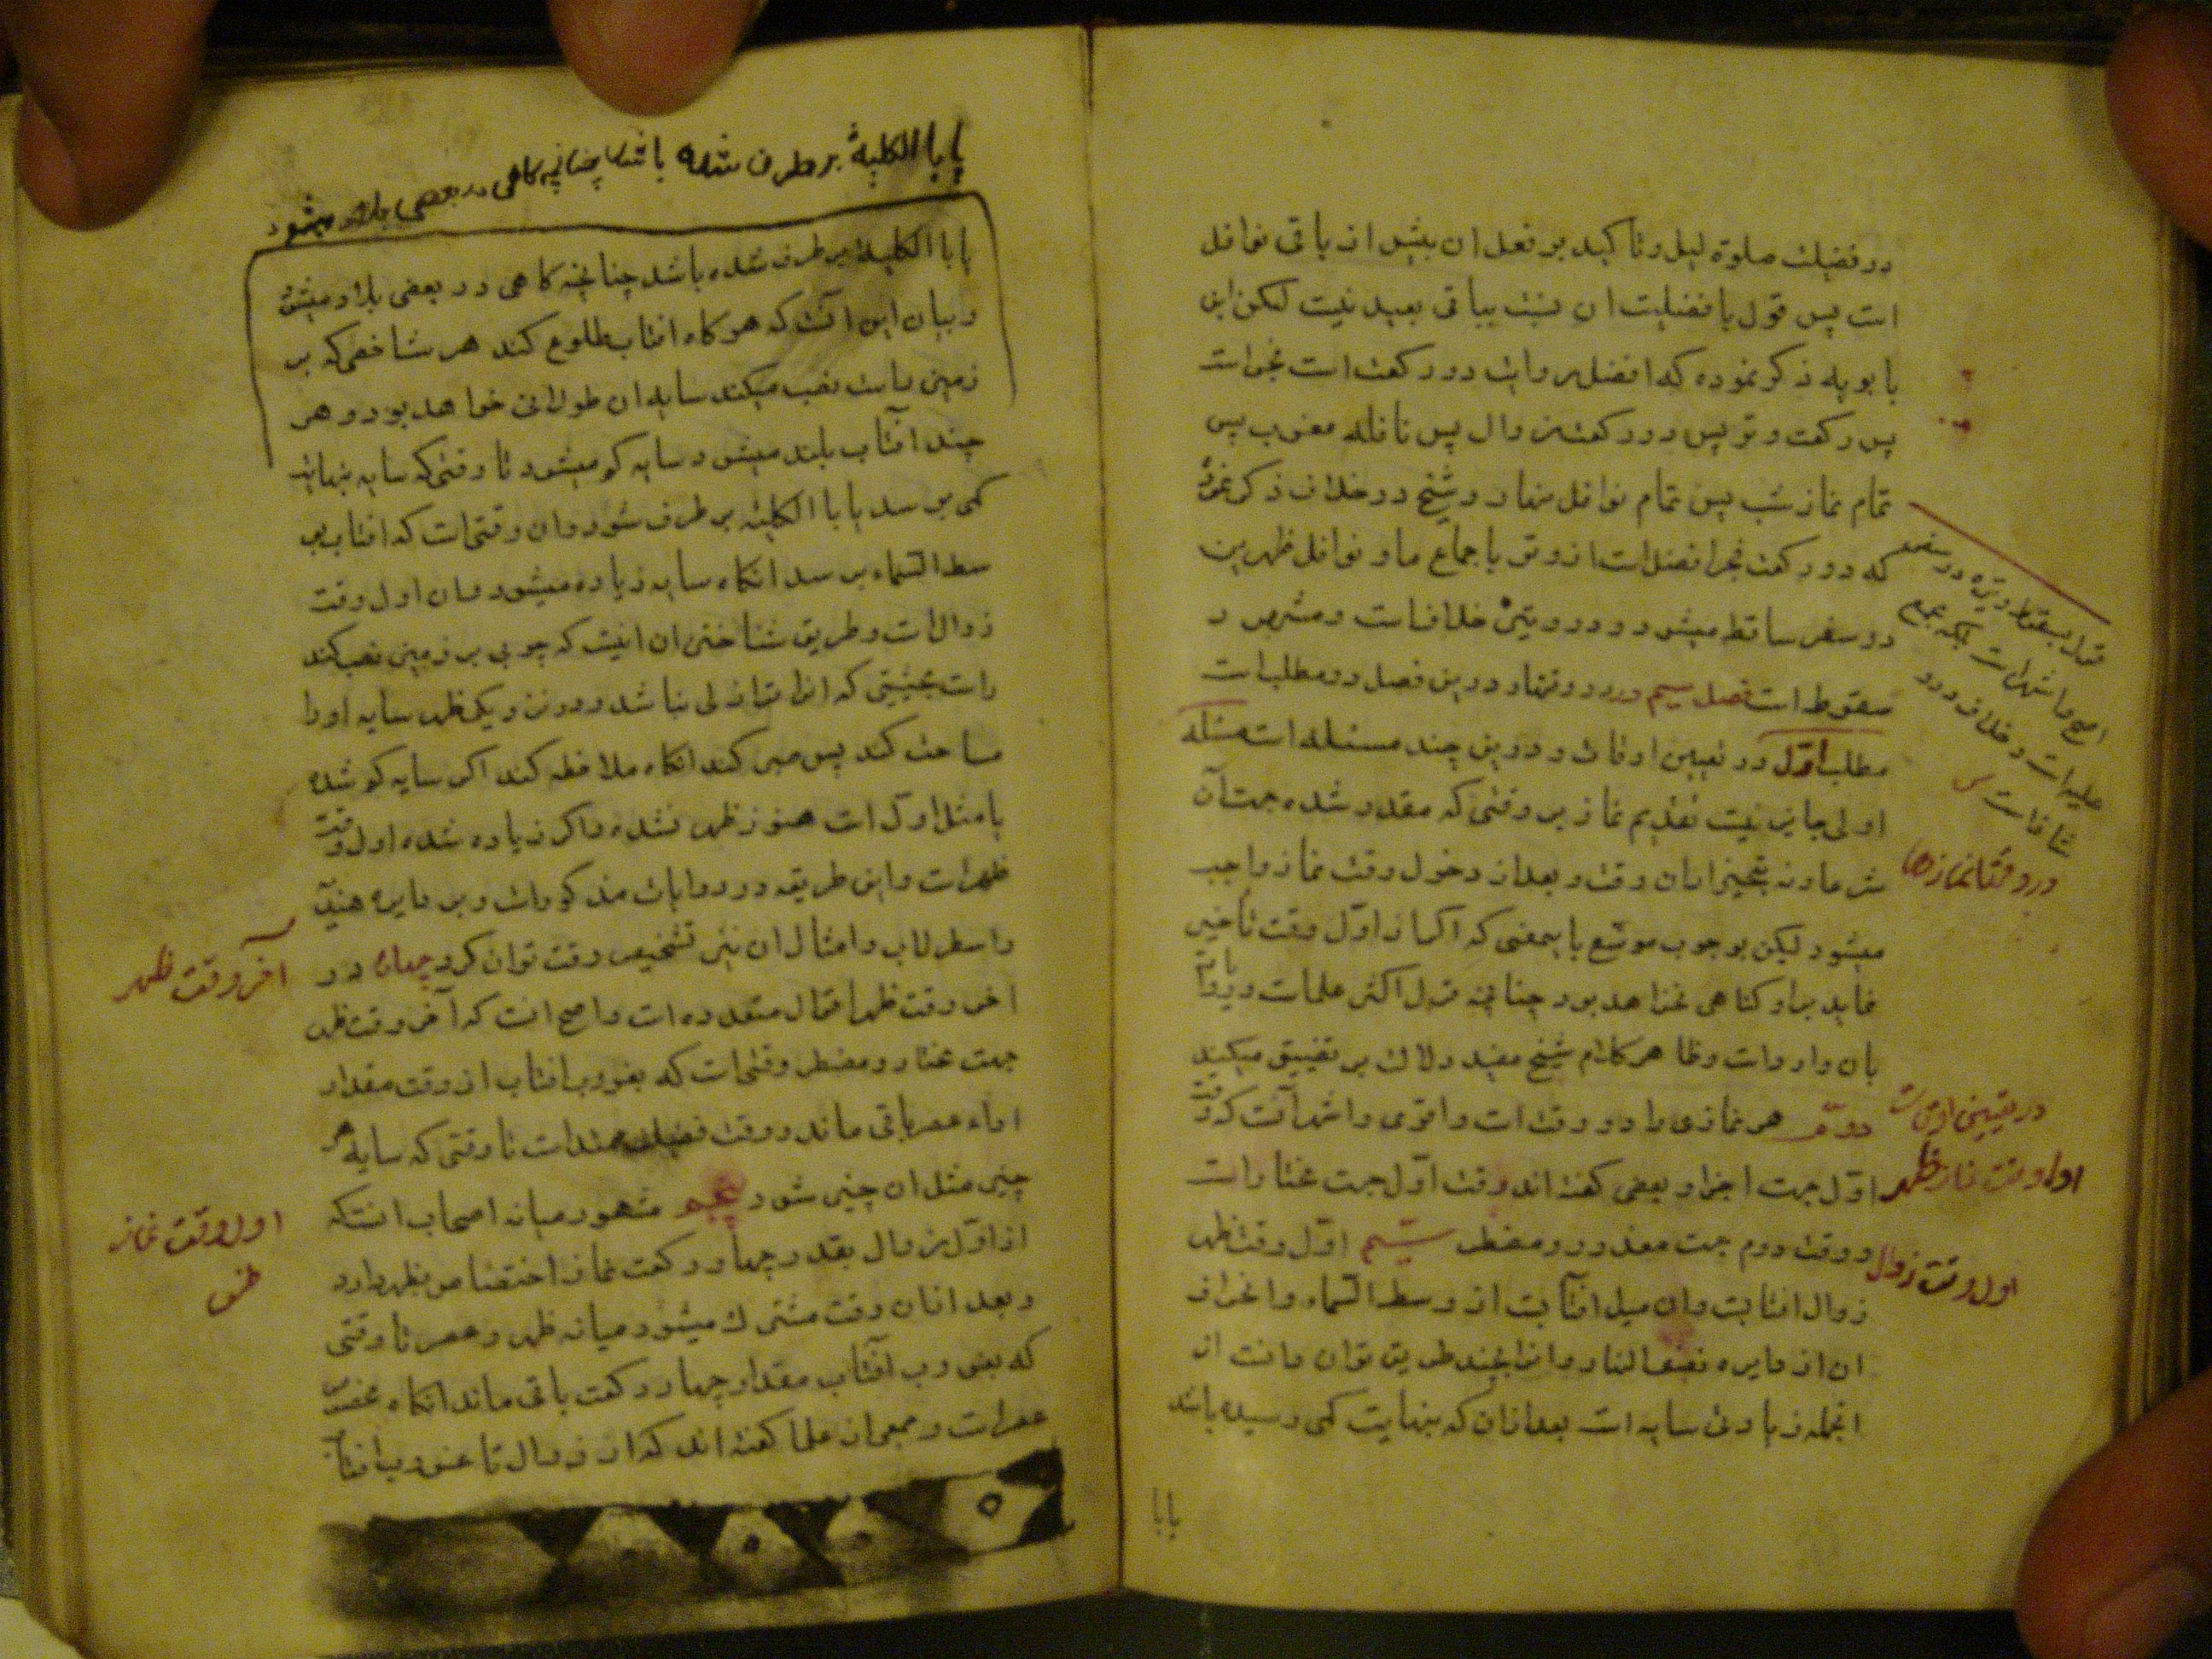 در فضیلت صلوة لیل و تاکید بر فعل ان بیش از باقی نوافل
است پس قول بافضلیت ان نسبت بباقی بعید نیست لیکن ابن
بابویه ذکر نموده که افضل رواتب دو رکعت است فجراست
پس رکعت وتر پس دو رکعت زوال پس نافله مغرب پس
تمام نماز شب پس تمام نوافل نهار و شیخ در خلاف ذکر نموده
که دو رکعت فجر افضل است از وتر باجماع ما و نوافل ظهرین
در سفر ساقط میشود و در وتیره خلافست و مشهور
سقوط است فصل سیم در وقتها و درین فصل دو مطلب است
مطلب اول در تعیین اوقات و درین چند مسئله است مسئله
اولی جایز نیست تقدیم نماز بر وقتی که مقدر شده جهت آن
شرعا و نه تاخیر از ان وقت و بعد از دخول وقت نماز واجب
میشود لیکن بوجوب موسع باینمعنی که اگر از اول وقت تاخیر
نماید بر او گناهی نخواهد بود چنانچه قول اکثر علماست و روایات
بان وارد است و ظاهر کلام شیخ مفید دلالت بر تضییق میکند
دویم هر نمازی را دو وقت است و اقوی و اشهر آنست که وقت
اول جهت اجزا و بعضی گفته اند وقت اول جهت مختار است
و وقت دوم جهت معذور و مضطر سیم اول وقت ظهر
زوال افتابست و ان میل افتابست از وسط السماء و انحراف
ان از دایره نصف النهار و انرا بچند طریق توان دانست از
انجمله زیادتی سایه است بعد از ان که بنهایت کمی رسیده باشد
یا با
قول بسقوط وتیره در سفر
اصح و اشهر است بلکه مجمع
علیه است و خلاف در
شاذ است
در وقت نمازها
در تعیین اوقات
اول وقت نماز ظهر
اول وقت زوال
یا بالکلیة برطرف شده باشد چنانچه کاهی در بعضی بلاد میشود
یا بالکلیة برطرف شده باشد چنانچه کاهی در بعضی بلاد میشود
و بیان این آنست که هرکاه افتاب طلوع کند هر شاخصی که بر
زمین راست نصب میکند سایه ان طولانی خواهد بود و هر
چند آفتاب بلند میشود سایه کم میشود تا وقتی که سایه بنهایت
کمی برسد یا بالکلیة برطرف شود و ان وقتی است که افتاب بو
سط السماء برسد انکاه سایه زیاده میشود و ان اول وقت
زوال است و طریق شناختن ان اینست که چوبی بر زمین نصب کند
راست بحیثیتی که انرا تزلزلی نباشد و در نزدیکی ظهر سایه او را
مساحت کند پس صبر کند انکاه ملاحظه کند اکر سایه کم شده
یا مثل اول است هنوز ظهر نشده و اکر زیاده شده اول وقت
ظهر است و این طریقه در روایات مذکور است و بر دایره هندیه
و اسطرلاب و امثال ان نیز تشخیص وقت توان کرد چهارم در
آخر وقت ظهر اقوال متعدده است و اصح انست که آخر وقت ظهر
جهت مختار و مضطر وقتی است که بغروب افتاب از وقت مقدار
اداء عصر باقی ماند و وقت فضیلت ممتد است تا وقتی که سایه هر
چیزی مثل ان چیز شود پنجم مشهور میانه اصحاب انستکه
از اول زوال بقدر چهار رکعت نماز اختصاص بظهر دارد
و بعد از ان وقت مشترک میشود میانه ظهر و عصر تا وقتی
که بغروب آفتاب مقدار چهار رکعت باقی ماند انکاه مخصوص
عصر است و جمعی از علما کفته اند که از زوال تا غروب افتاب
آخر وقت ظهر
اول وقت نماز